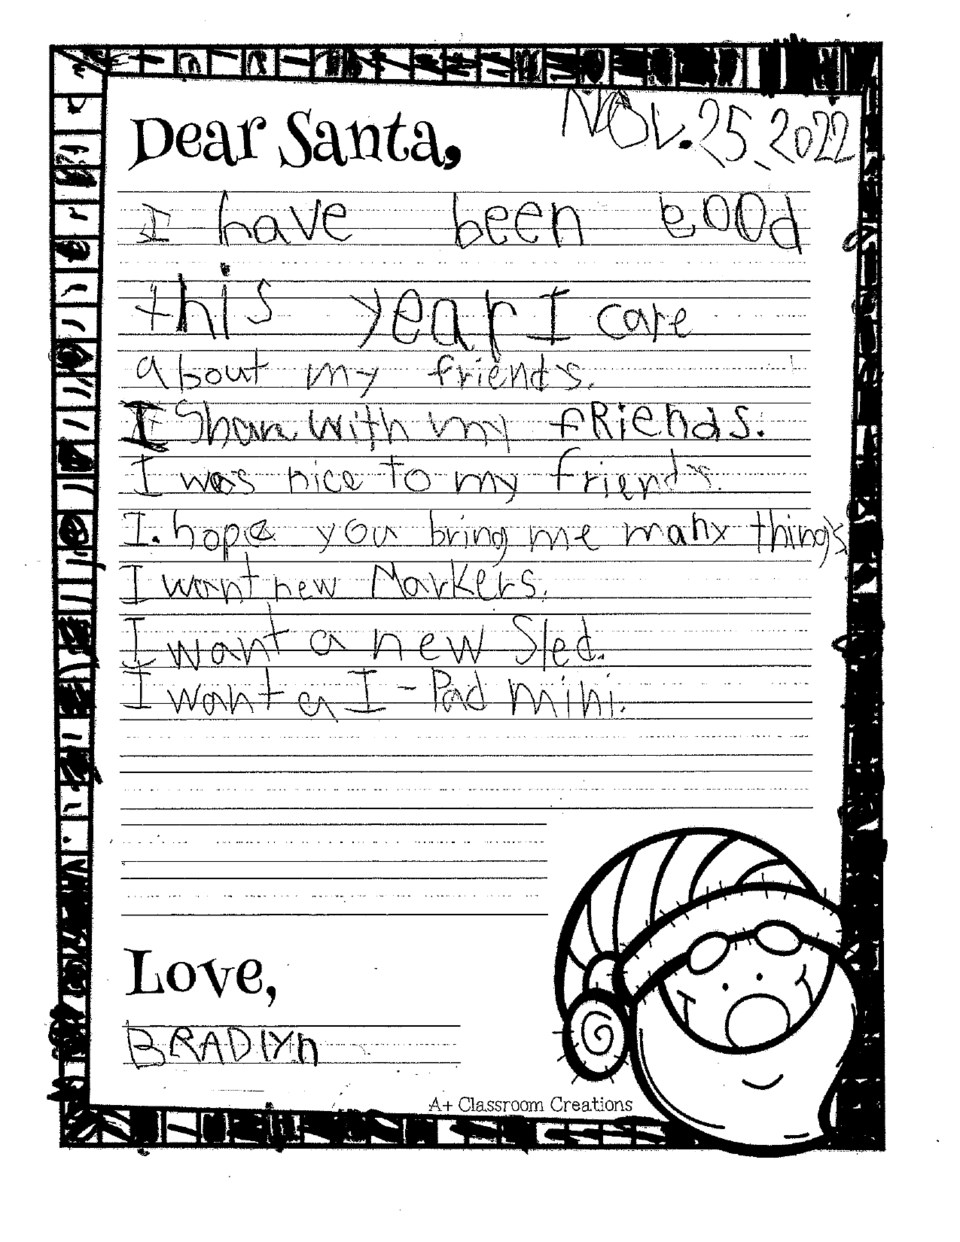 Dear Santa,
Nov. 25, 2022
I have been good
this year I care
about my friends.
I Share with my fRiends.
I was nice to my friends.
I. hope you bring me many things
I want new Markers.
I want a new Sled.
I want a I-Pad mini.
Love,
BRADlYn
A+ Classroom Creations